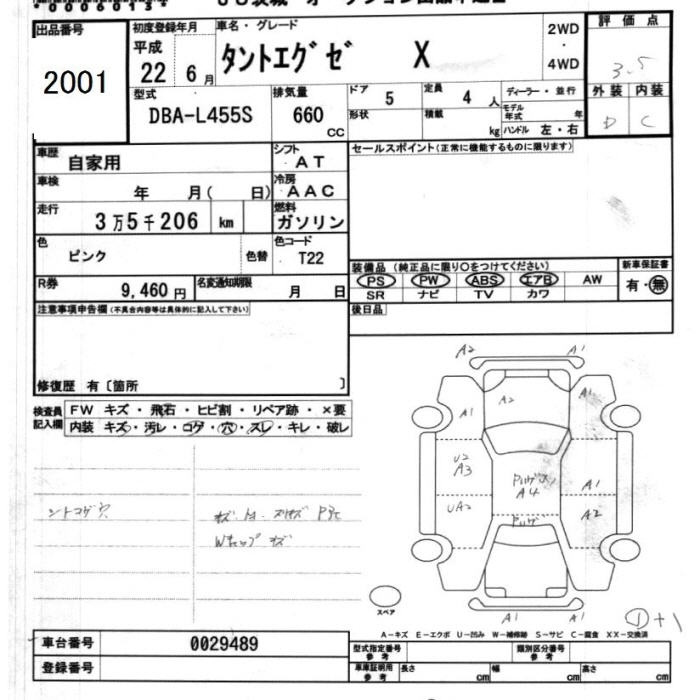 出品番号
2001
初度登録年月
平成
22年 6月
車名・グレード
タントエグゼ X
2WD
・
4WD
評価点
3.5
外装 内装
D C
型式
DBA-L455S
排気量
660
CC
ドア
5
形状
定員
4 人
積載
kg
ディーラー・並行
モデル
年式 年
ハンドル 左・右
車歴
自家用
シフト
AT
車検
年 月( 日)
冷房
AAC
走行
3万5千206 km
燃料
ガソリン
色
ピンク
色替
色コード
T22
R券
9,460 円
名変通知期限
月 日
セールスポイント(正常に機能するものに限ります)
装備品 (純正品に限り○をつけてください)
PS PW ABS エアB AW
SR ナビ TV カワ
新車保証書
有・無
後日品
注意事項申告欄(不具合内容等は具体的に記入して下さい)
修復歴 有〔箇所 〕
検査員
記入欄
FW キズ・飛石・ヒビ割・リペア跡・×要
内装 キズ・汚レ・コゲ・穴・スレ・キレ・破レ
シートコゲ穴
Wキャップ キズ
A2 A1
A1 A2 A1
U2
A3
A4
A1
UA2
A2
A1 A1
①+1
スペア
A-キズ E-エクボ U-凹み W-補修跡 S-サビ C-腐食 XX-交換済
車台番号
0029489
登録番号
型式指定番号
参考
類別区分番号
参考
車庫証明用
参考
長さ cm 幅 cm 高さ cm